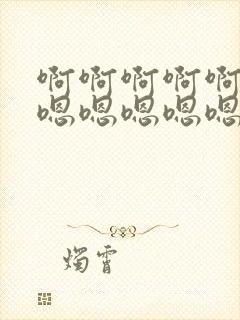 啊啊啊啊啊
嗯嗯嗯嗯嗯
烛霄